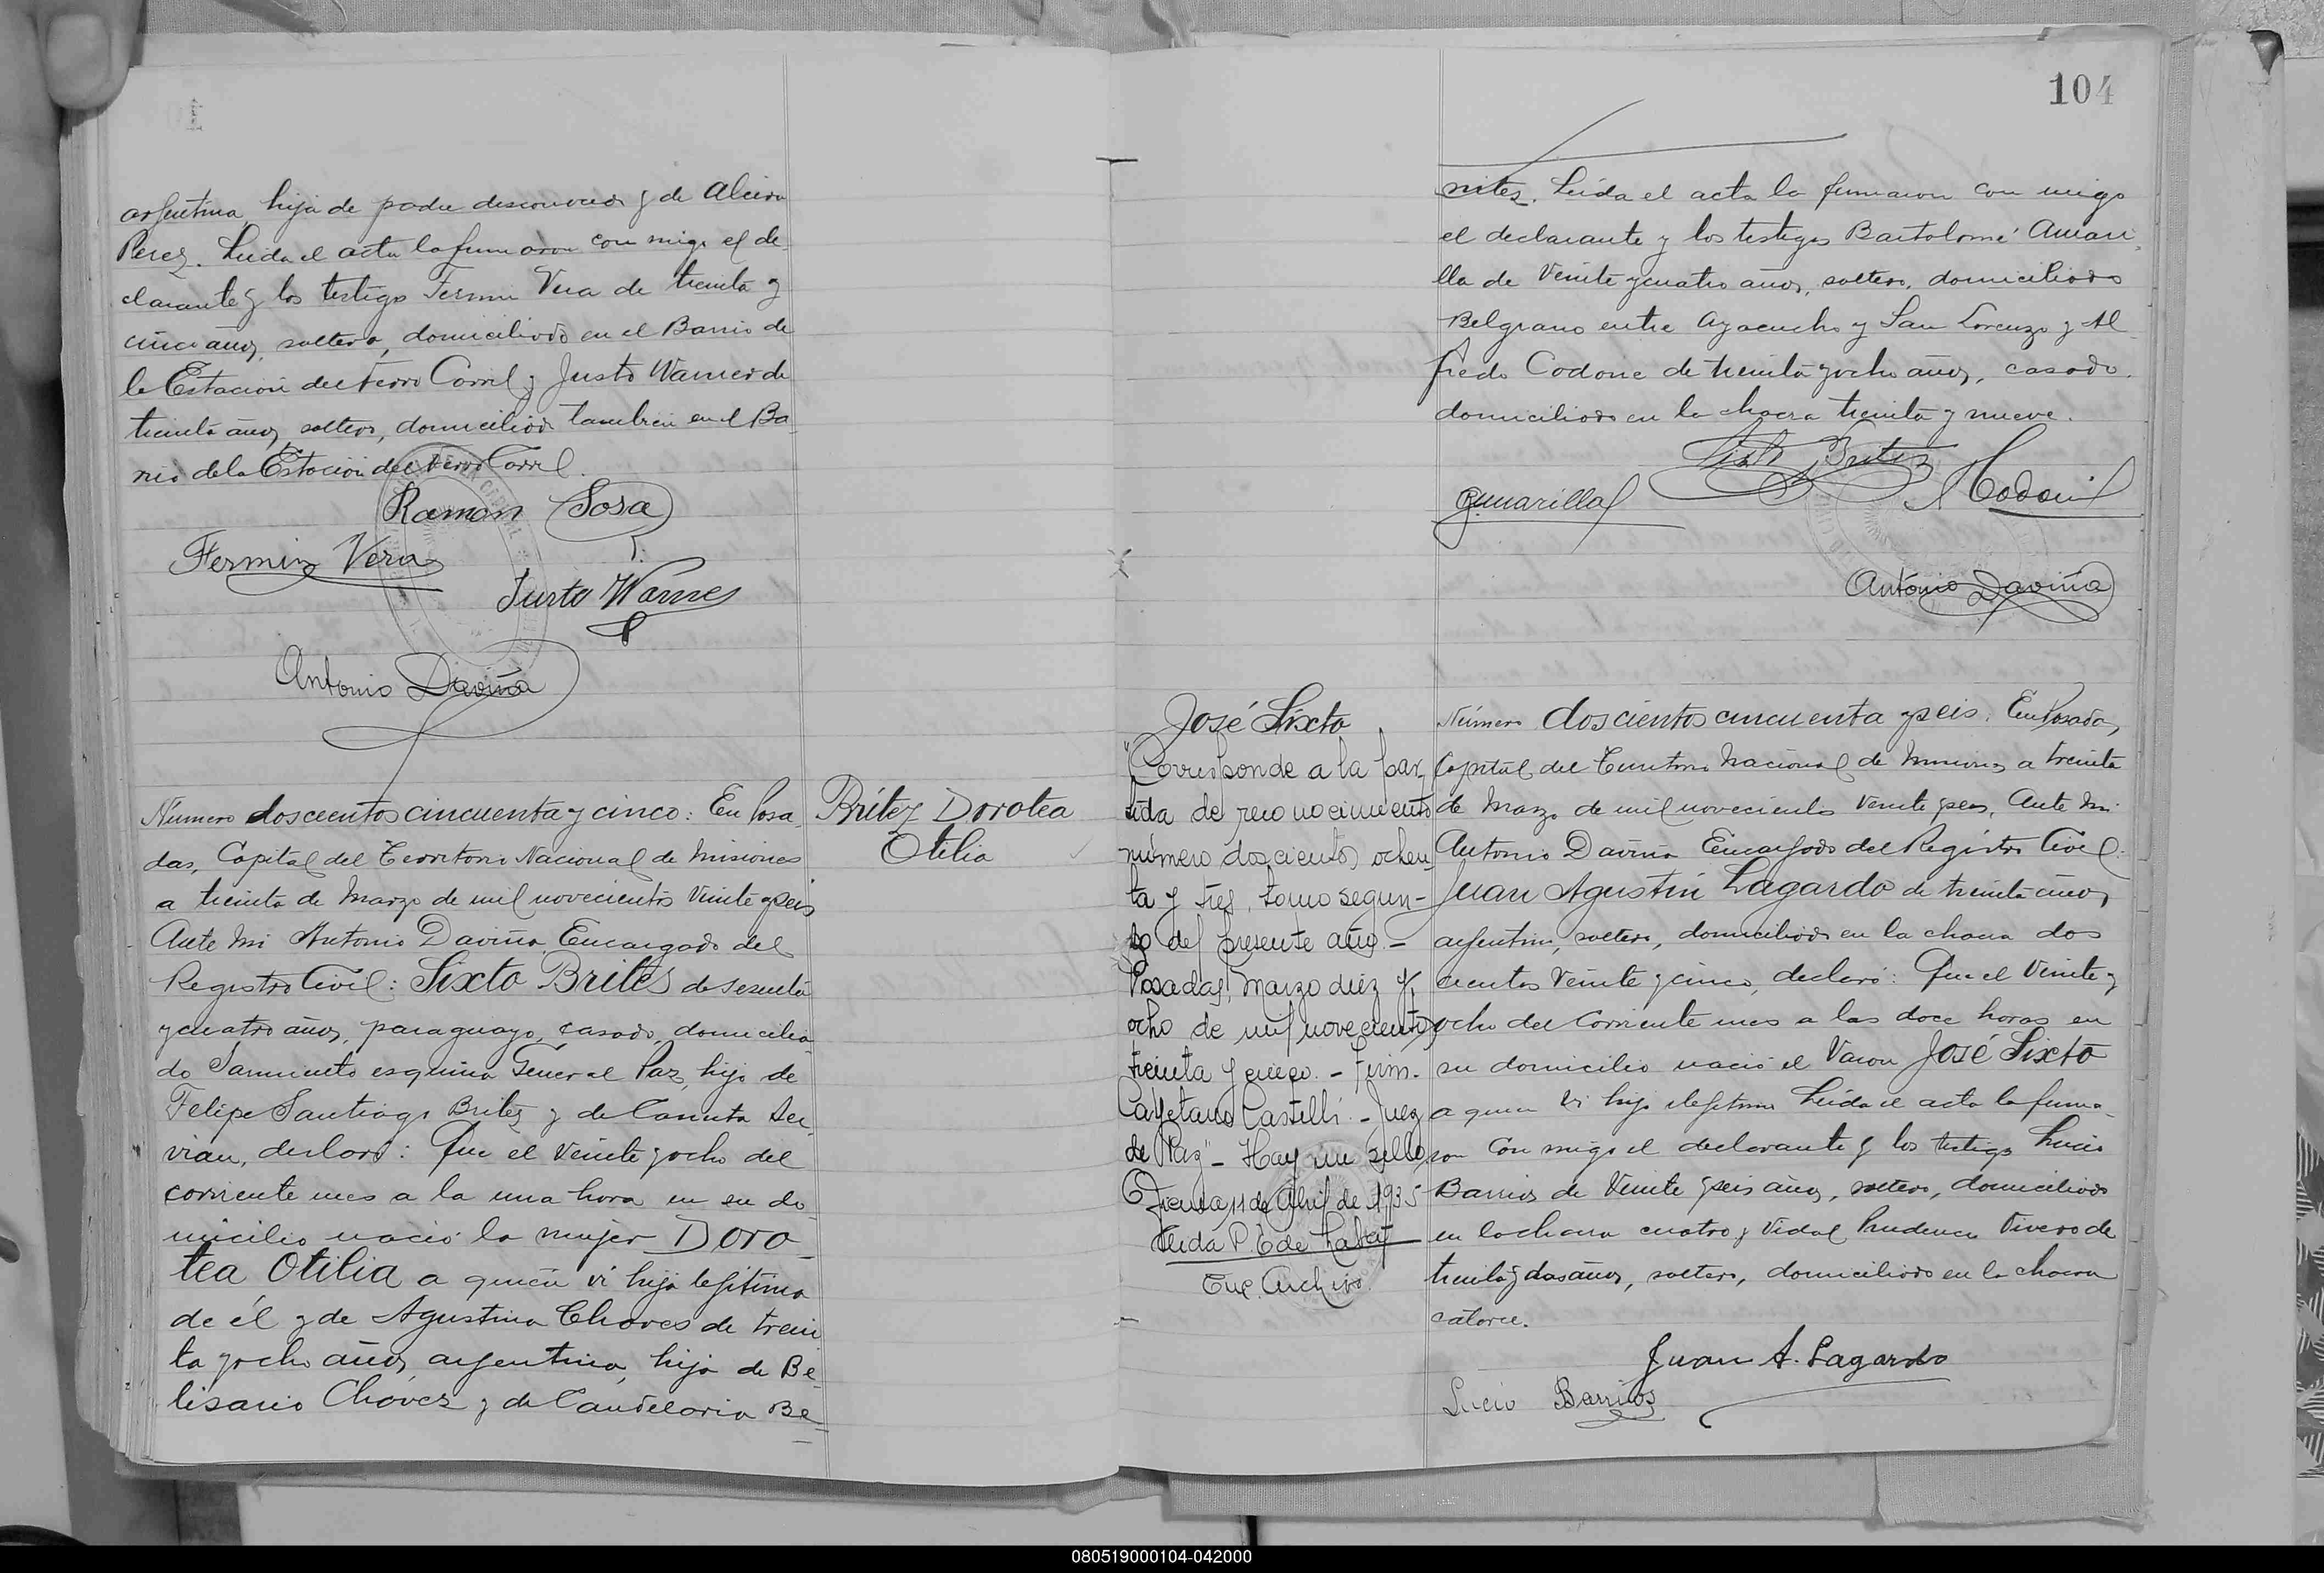 argentina, hija de padre desconocido y de Alcira
Perez. Leida el acta la firmaron con migo el de-
clarante y los testigos Fermin Vera de treinta y
cinco años, soltero, domiciliado en el Barrio de
la Estación del Ferro Carril y Justo Warnes de
treinta años, soltero, domiciliado tambien en el Ba-
rrio de la Estación del Ferro Carril.
Ramon Sosa
Fermin Vera
Justo Warnes
Antonio Daviña
Número doscientos cincuenta y cinco: En Posa-
das, Capital del Territorio Nacional de Misiones
a treinta de Marzo de mil novecientos Veinte y seis
Ante Mi Antonio Daviña Encargado del
Registro Civil: Sixto Brites de sesenta
y cuatro años, paraguayo, casado, domicilia-
do Sarmiento esquina General Paz, hijo de
Felipe Santiago Britez y de Canuta Ser-
vian, declaró: Que el Veinte y ocho del
corriente mes a la una hora en su do-
micilio nació la mujer Doro-
tea Otilia a quien vi hija legitima
de él y de Agustina Chaves de trein
ta y ocho años, argentina, hija de Be-
lisario Chavez y de Candelaria Be-
Britez Dorotea
Otilia
104
nitez. Leida el acta la firmaron con migo
el declarante y los testigos Bartolomé Amari-
lla de Veinte y cuatro años, soltero, domiciliado
Belgrano entre Ayacucho y San Lorenzo y Al-
fredo Codone de treinta y ocho años, casado,
domiciliado en la chacra treinta y nueve.
Sixto Britez
Antonio Daviña
José Sixto
"Corresponde a la par-
tida de reconocimiento
número doscientos ochen-
ta y tres, tomo segun-
do del presente año.-
Posadas, Marzo diez y
ocho de mil novecientos
treinta y cinco.- Firm.
Cayetano Castelli.- Juez
de Paz"- Hay un sello.
11 de Abril de 1935
Enc. Archivo.
Número doscientos cincuenta y seis. En Posadas,
Capital del Territorio Nacional de Misiones a treinta
de Marzo de mil novecientos Veinte y seis, Ante Mi
Antonio Daviña Encargado del Registro Civil:
Juan Agustin Lagardo de treinta años,
argentino, soltero, domiciliado en la chacra dos
cientos Veinte y cinco, declaró: Que el Veinte y
ocho del Corriente mes a las doce horas en
su domicilio nació el Varon José Sixto
a quien vi hijo ilegitimo Leida el acta la firma-
ron Con migo el declarante y los testigos Lucio
Barrios de Veinte y seis años, soltero, domiciliado
en la chacra cuatro y Vidal Prudencio Vivero de
treinta y dos años, soltero, domiciliado en la chacra
catorce.
Juan A. Lagardo
Lucio Barrios
080519000104-042000